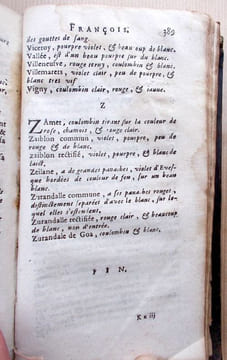 FRANÇOIS. 389
des gouttes de sang.
Viceroy, pourpre violet, & beaucoup de blanc.
Vallée, est d'un beau pourpre sur du blanc.
Villeneufve, rouge terny, coulombin & blanc.
Villemarets, violet clair, peu de pourpre, &
blanc tres vif
Vigny, coulombin clair, rouge, & jaune.
Z
ZAmet, coulombin tirant sur la couleur de
rose, chamois, & rouge clair.
Zaiblon commun, violet, pourpre, peu de
rouge & de blanc.
Zaiblon rectifié, violet, pourpre, & blanc de
laict.
Zeilane, a de grandes panaches, violet d'Evesque
bordées de couleur de feu, sur un beau
blanc.
Zurandalle commune, a ses panaches rouges,
distinctement separées d'avec le blanc, sur lequel
elles s'estendent,
Zurandalle rectifiée, rouge clair, & beaucoup
de blanc, non d'entrée.
Zurandale de Goa, coulombin & blanc,
FIN.
Kk iij